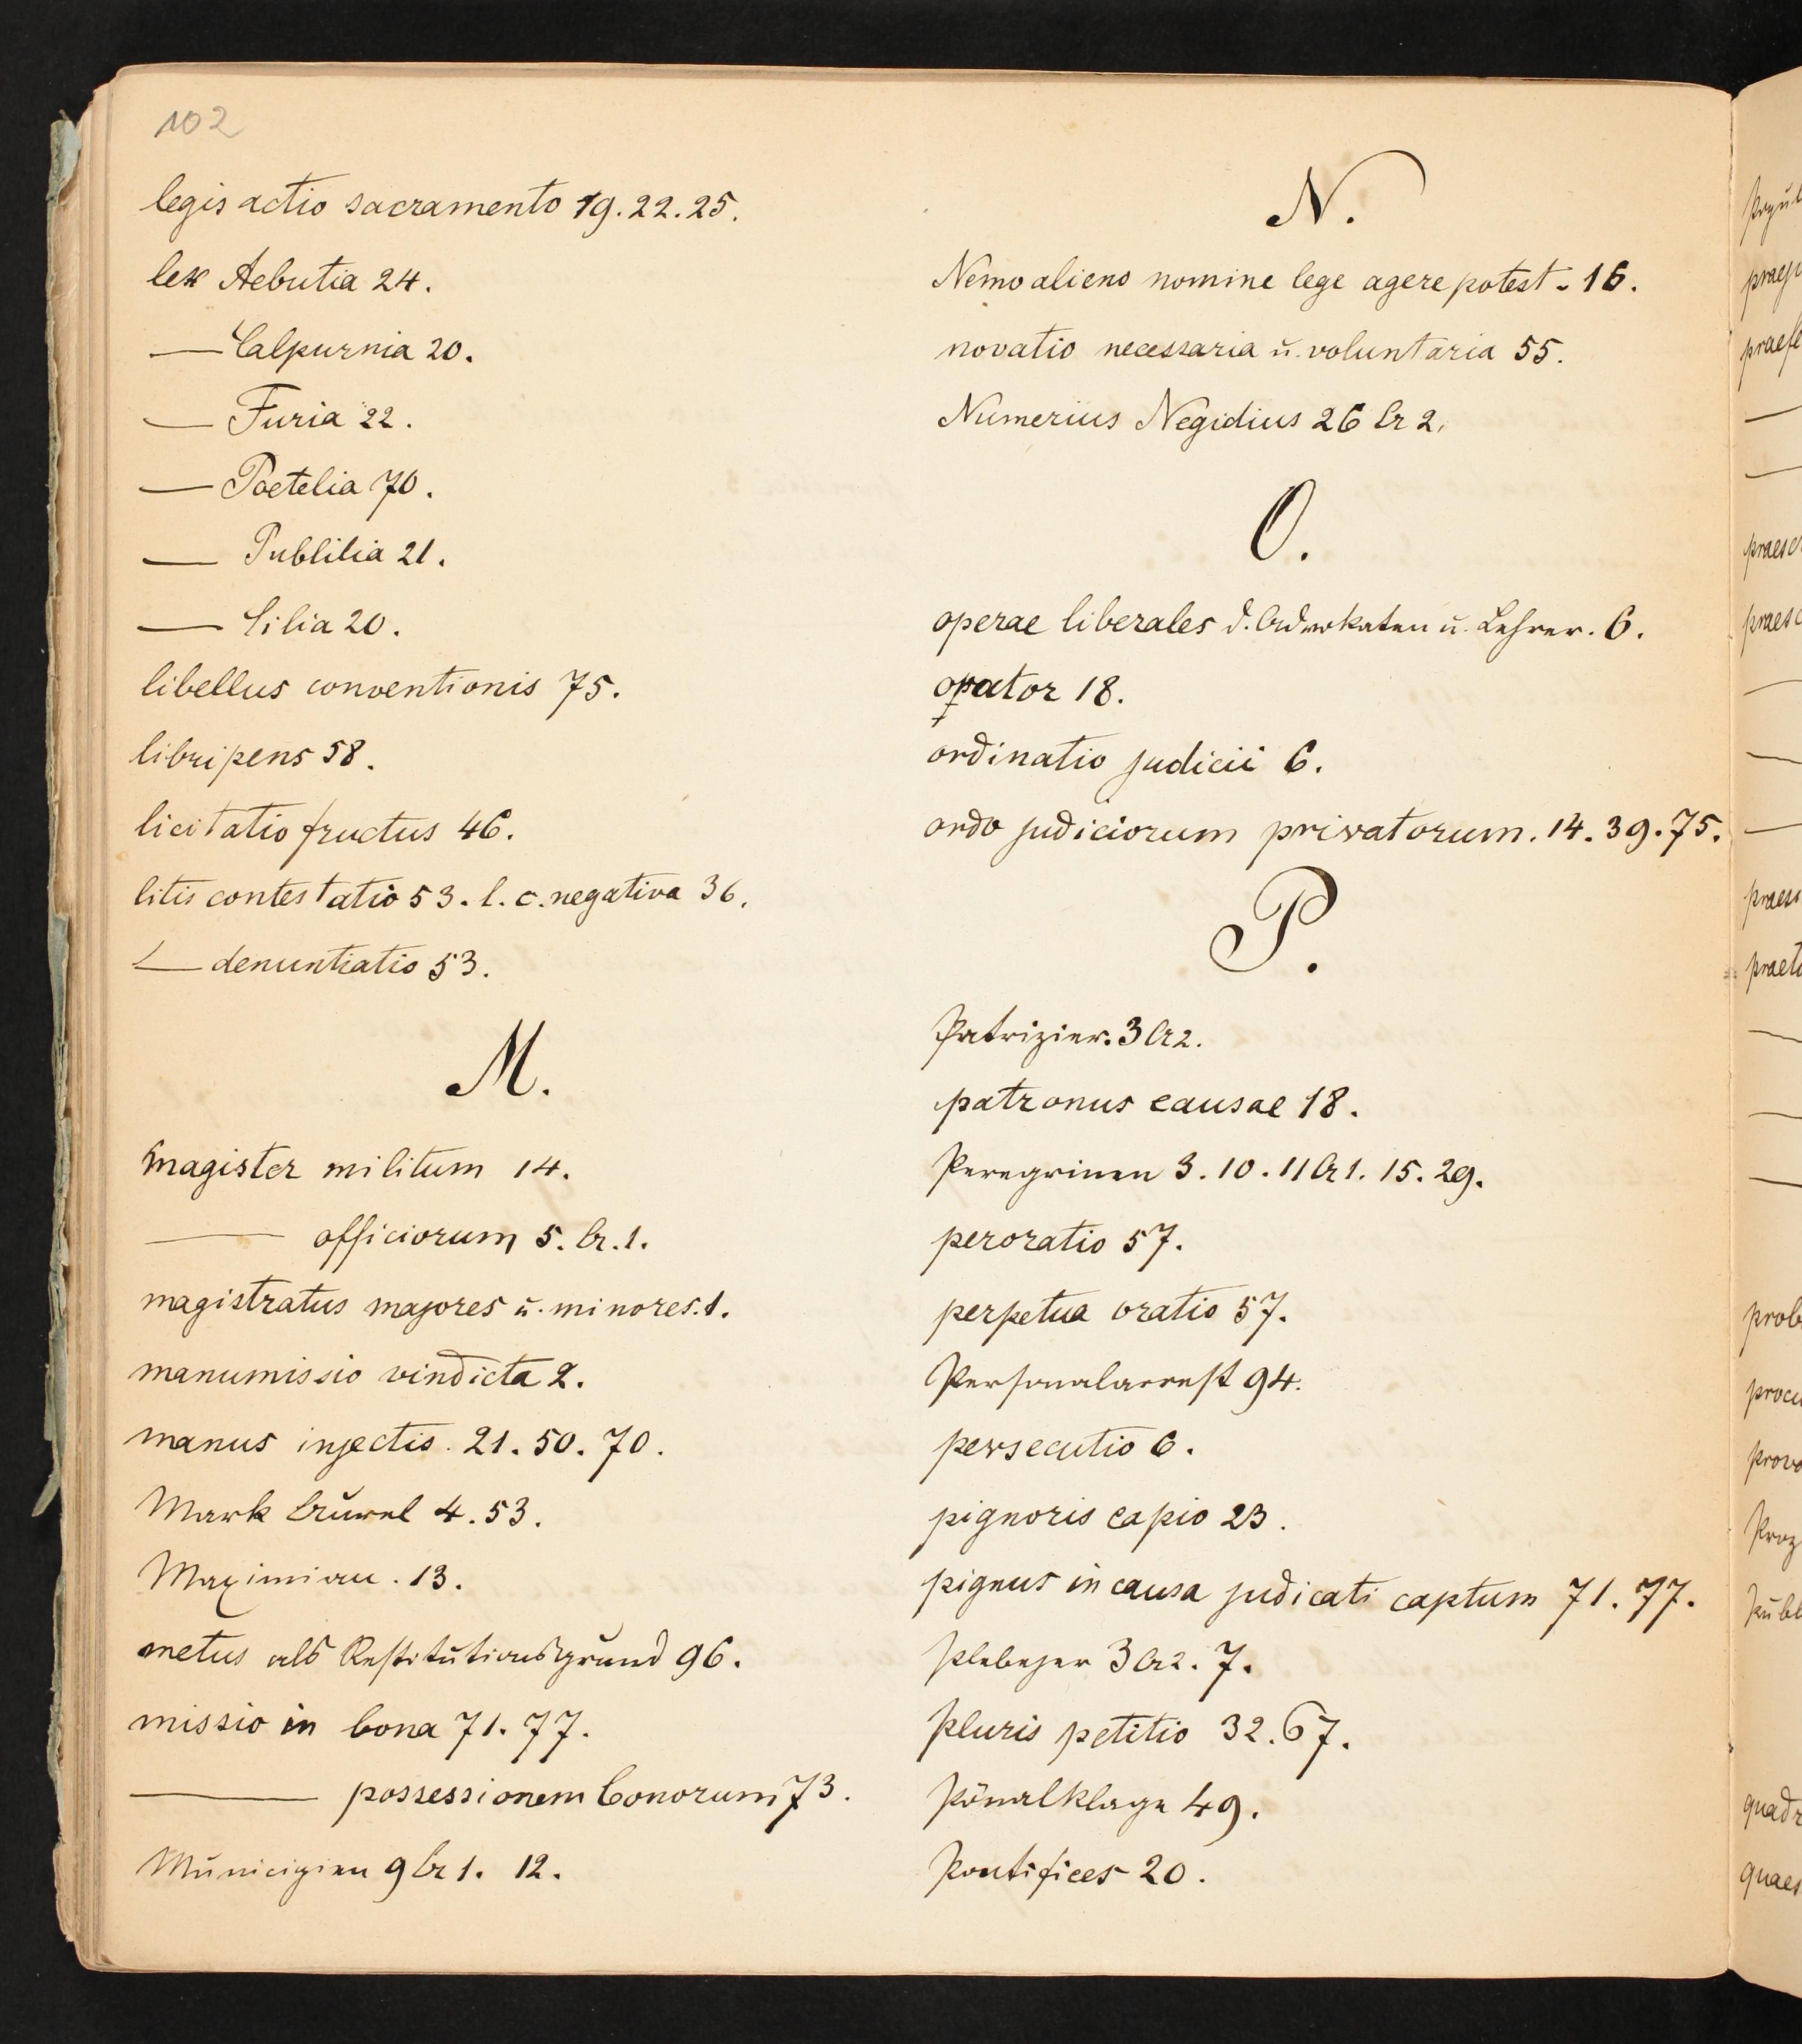 102
legis actio sacramento 19. 22. 25.
lex Aebutia 24.
— Calpurnia 20.
— Furia 22.
— Poetelia 70.
— Publilia 21.
— Silia 20.
libellus conventionis 75.
libripens 58.
licitatio fructus 46.
litis contestatio 53. l. c. negativa 36.
— denuntiatio 53.
M.
magister militum 14.
— officiorum 5. A. 1.
magistratus majores u. minores. 1.
manumissio vindicta 2.
manus injectio. 21. 50. 70.
Mark Aurel 4. 53.
Maximian. 13.
metus als Restitutionsgrund 96.
missio in bona 71. 77.
— possessionem bonorum 73.
Municipien 9 A 1. 12.
N.
Nemo alieno nomine lege agere potest - 16.
novatio necessaria u. voluntaria 55.
Numerius Negidius 26 A 2.
O.
operae liberales d. Advokaten u. Lehrer. 6.
orator 18.
ordinatio judicii 6.
ordo judiciorum privatorum. 14. 39. 75.
P.
Patrizier. 3 A 2.
patronus causae 18.
Peregrinen 3. 10. 11 A 1. 15. 29.
peroratio 57.
perpetua oratio 57.
Personalarrest 94.
persecutio 6.
pignoris capio 23.
pignus in causa judicati captum 71. 77.
Plebejer 3 A 2. 7.
pluris petitio 32. 67.
Pönalklage 49.
Pontifices 20.